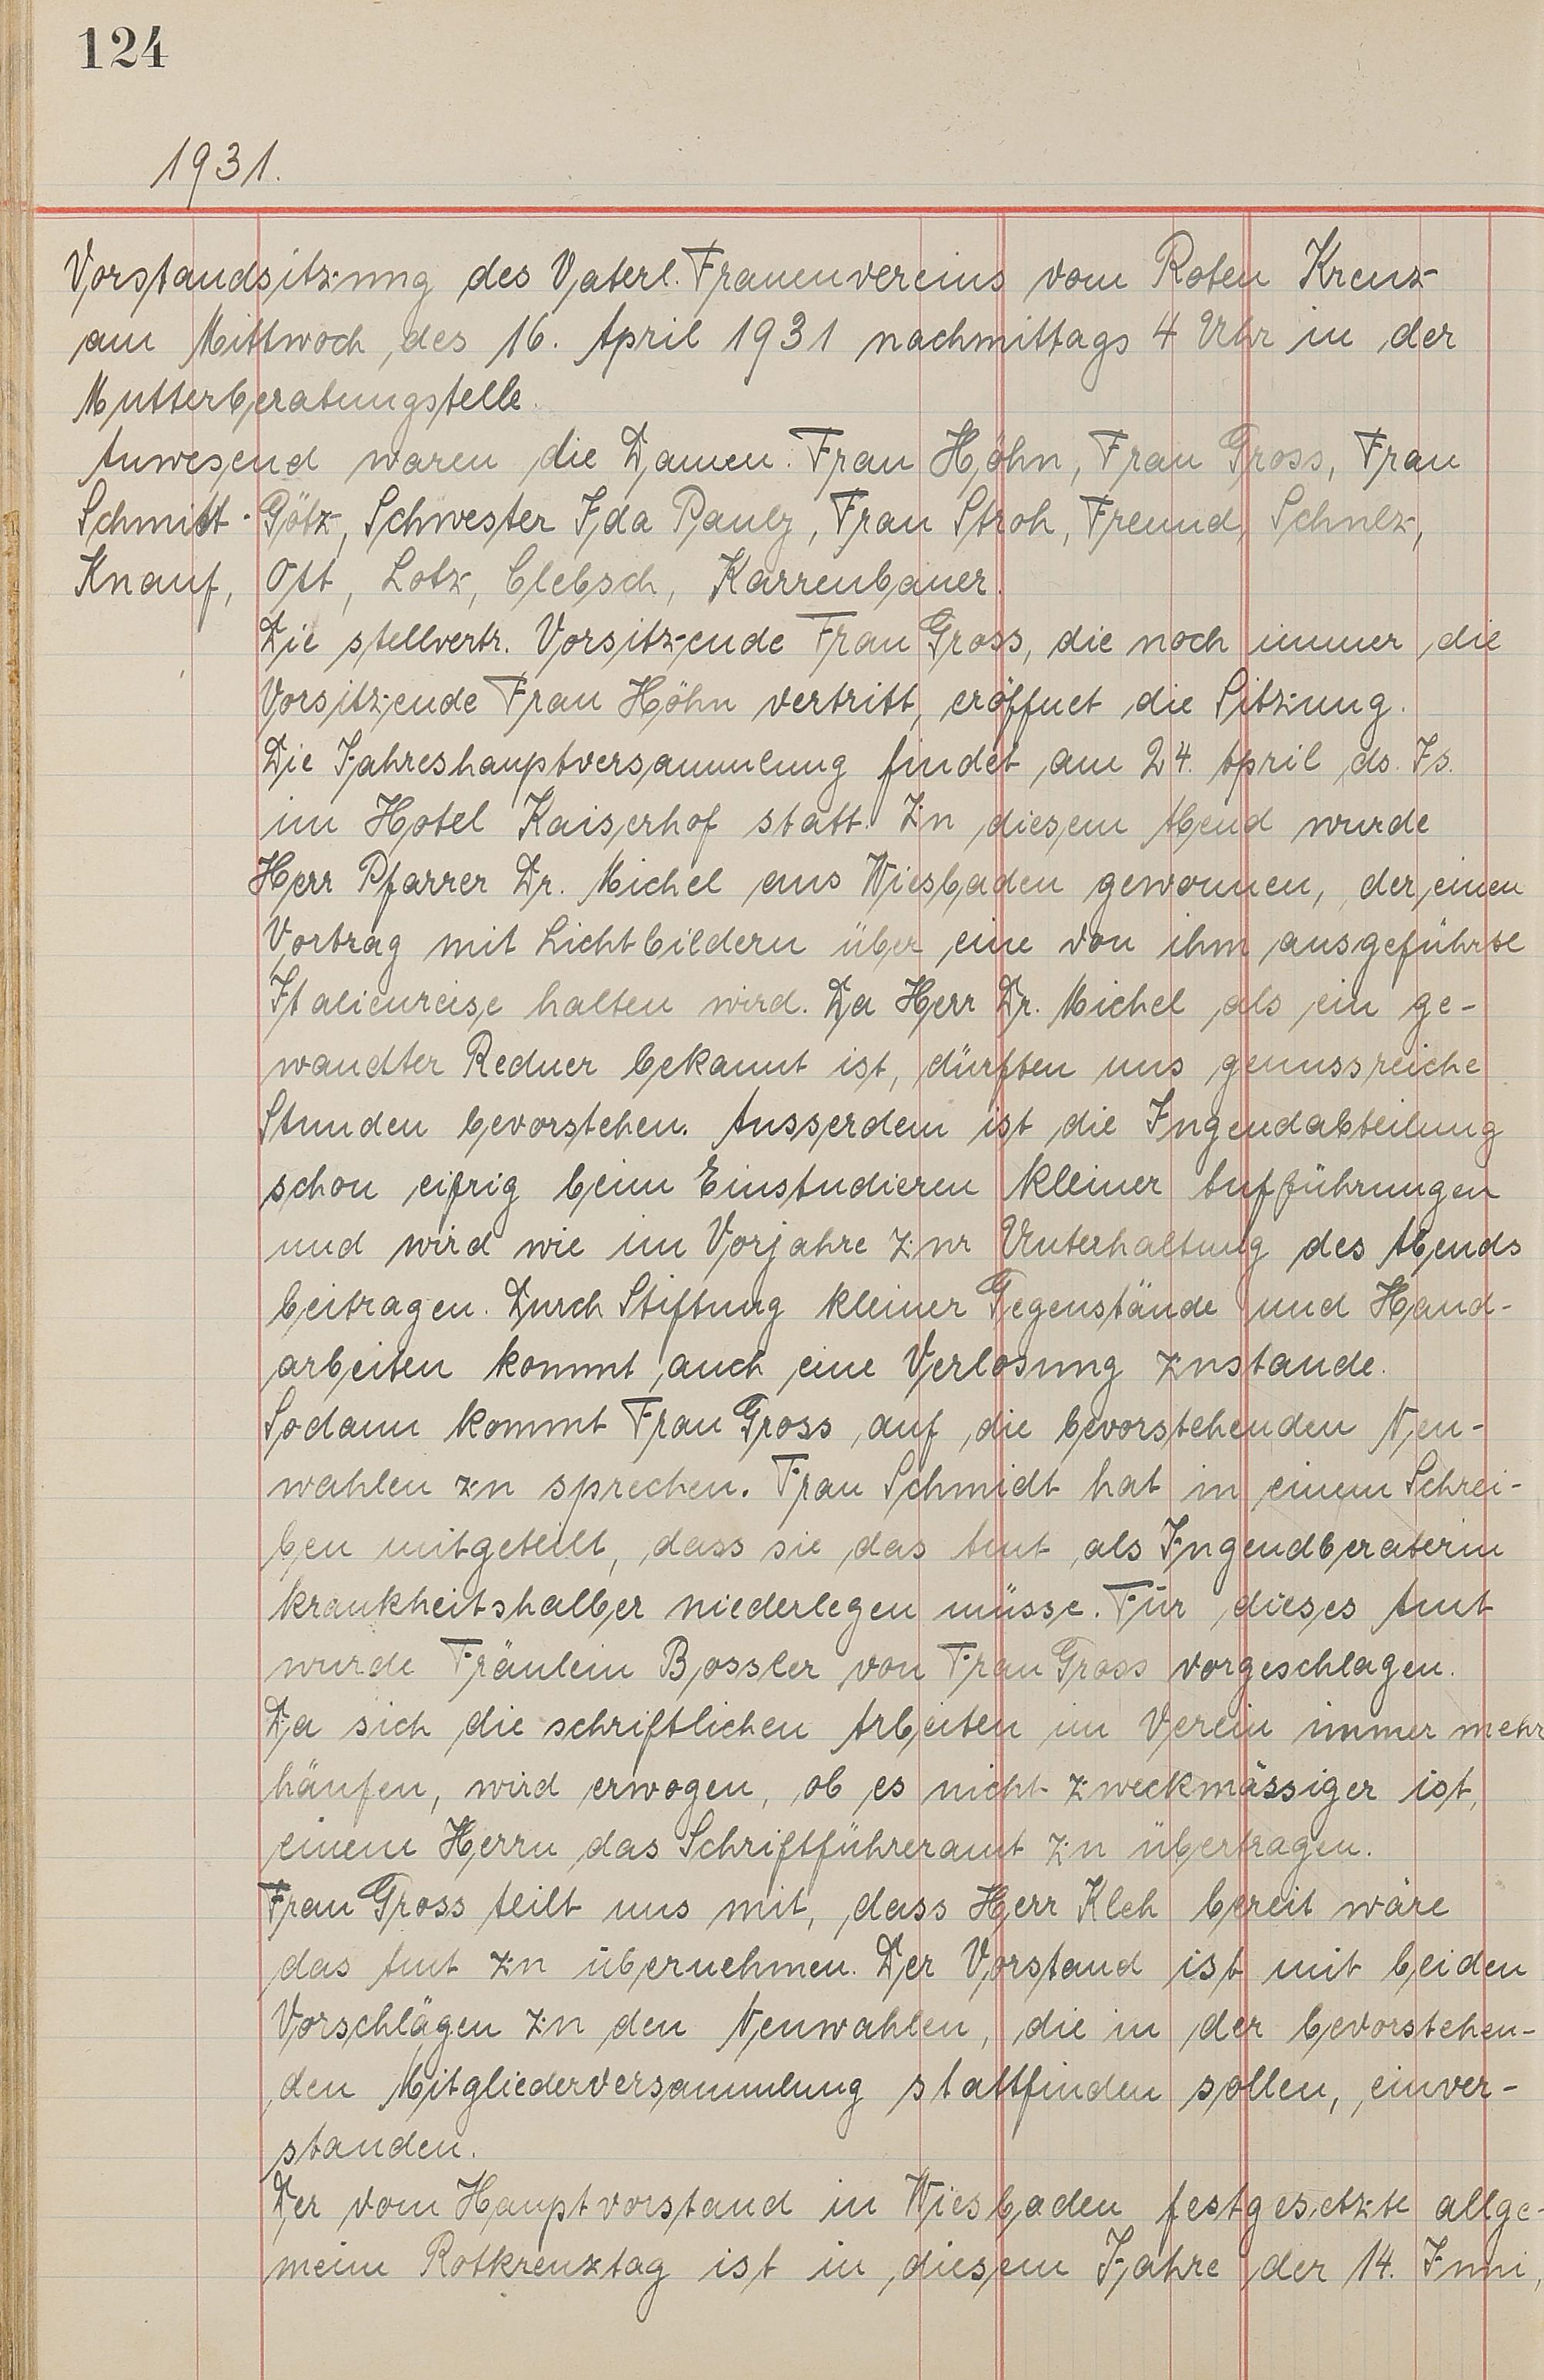 124
1931.
Vorstandsitzung des Vaterl. Frauenvereins vom Roten Kreuz
am Mittwoch, des 16. April 1931 nachmittags 4 Uhr in der
Mutterberatungstelle.
Anwesend waren die Damen: Frau Höhn, Frau Gross, Frau
Schmitt-Götz, Schwester Ida Pauly, Frau Stroh, Freund, Schulz,
Knauf, Ott, Lotz, Clebsch, Karrenbauer.
Die stellvertr. Vorsitzende Frau Gross, die noch immer die
Vorsitzende Frau Höhn vertritt, eröffnet die Sitzung.
Die Jahreshauptversammlung findet am 24. April ds. Js.
im Hotel Kaiserhof statt. Zu diesem Abend wurde
Herr Pfarrer Dr. Michel aus Wiesbaden gewonnen, der einen
Vortrag mit Lichtbildern über eine von ihm ausgeführte
Italienreise halten wird. Da Herr Dr. Michel als ein ge-
wandter Redner bekannt ist, dürften uns genussreiche
Stunden bevorstehen. Ausserdem ist die Jugendabteilung
schon eifrig beim Einstudieren kleiner Aufführungen
und wird wie im Vorjahre zur Unterhaltung des Abends
beitragen. Durch Stiftung kleiner Gegenstände und Hand-
arbeiten kommt auch eine Verlosung zustande.
Sodann kommt Frau Gross auf die bevorstehenden Neu-
wahlen zu sprechen. Frau Schmidt hat in einem Schrei-
ben mitgeteilt, dass sie das Amt als Jugendberaterin
krankheitshalber niederlegen müsse. Für dieses Amt
wurde Fräulein Bossler von Frau Gross vorgeschlagen.
Da sich die schriftlichen Arbeiten im Verein immer mehr
häufen, wird erwogen, ob es nicht zweckmässiger ist,
einem Herrn das Schriftführeramt zu übertragen.
Frau Gross teilt uns mit, dass Herr Kleh bereit wäre
das Amt zu übernehmen. Der Vorstand ist mit beiden
Vorschlägen zu den Neuwahlen, die in der bevorstehen-
den Mitgliederversammlung stattfinden sollen, einver-
standen.
Der vom Hauptvorstand in Wiesbaden festgesetzte allge-
meine Rotkreuztag ist in diesem Jahre der 14. Juni,